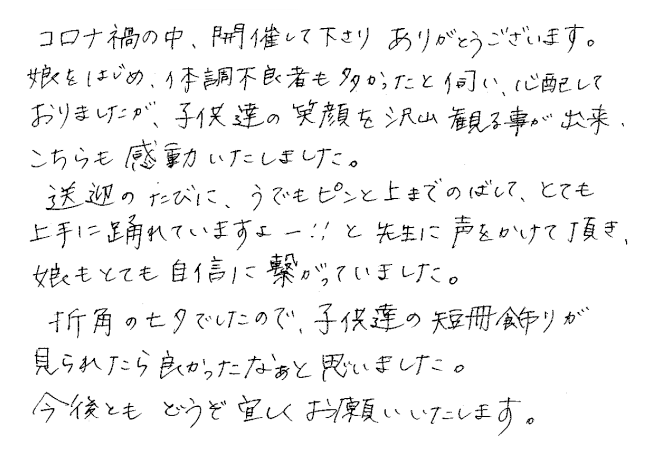 コロナ禍の中、開催して下さり ありがとうございます。
娘をはじめ、体調不良者も多かったと伺い、心配して
おりましたが、子供達の笑顔を沢山観る事が出来、
こちらも感動いたしました。
送迎のたびに、うでもピンと上までのばして、とても
上手に踊れていますよー!! と先生に声をかけて頂き、
娘もとても自信に繋がっていました。
折角の七夕でしたので、子供達の短冊飾りが
見られたら良かったなぁと思いました。
今後とも どうぞ宜しくお願いいたします。